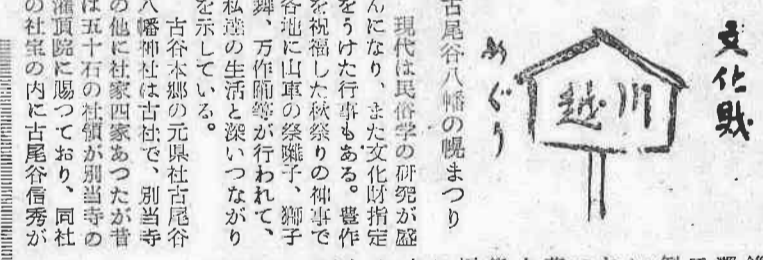 文化財
川越
めぐり
古尾谷八幡の幌まつり
現代は民俗学の研究が盛
んになり、また文化財指定
をうけた行事もある。豊作
を祝福した秋祭りの神事で
各地に山車の祭囃子、獅子
舞、万作踊等が行われて、
私達の生活と深いつながり
を示している。
古谷本郷の元県社古尾谷
八幡神社は古社で、別当寺
の他に社家四家あつたが昔
は五十石の社領が別当寺の
灌頂院に賜つており、同社
の社宝の内に古尾谷信秀が